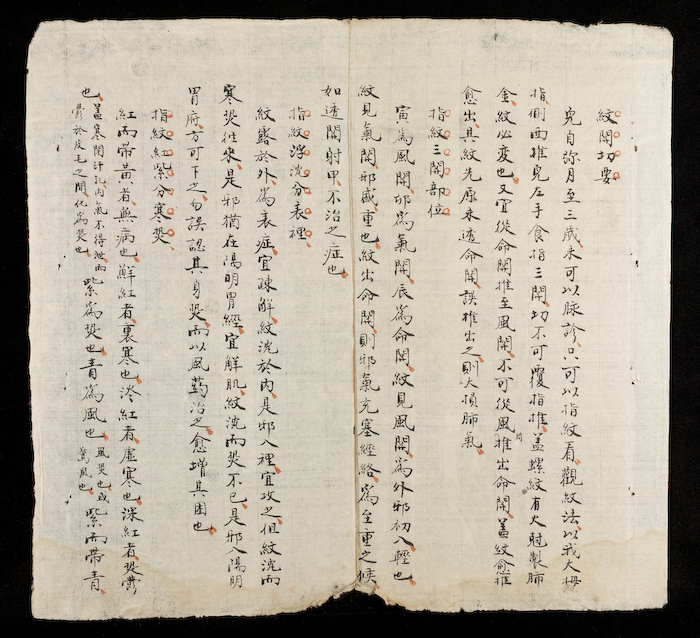 紋関切要
児自弥月至三歳未可以脉診只可以指紋看觀紋法以我大拇
指側面推児左手食指三関切不可覆指推盖螺紋有火尅製肺
金紋必變也又宜從命関推至風関不可從風関推出命関盖紋愈推
愈出其紋先原未透命関誤推出之則大損肺氣
指紋三関部位
寅為風関卯為氣関辰為命関紋見風関為外邪初入輕也
紋見氣関邪盛重也紋出命関則邪氣充塞經絡為至重之候
如透関射甲不治之症也
指紋浮沈分表裡
紋露於外為表症宜疎解紋沈於內是邪入裡宜攻之但紋沈而
寒熒徃來是邪猶在陽明胃經宜解肌紋沈而熒不已是邪入陽明
胃府方可下之勿誤認其身熒而以風药治之愈增其困也
指紋紅紫分寒熒
紅而帶黃者無病也鮮紅者裏寒也淡紅者虛寒也深紅者熒鬱
也盖寒閉汗孔內氣不得泄而鬱於皮毛之間化為熒也紫為熒也青為風也風熒也或驚風也紫而帶青